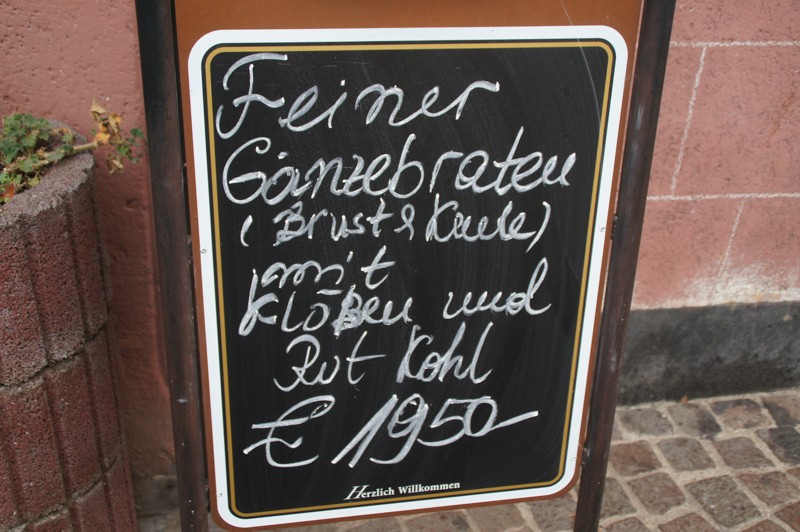 Feiner
Gänzebraten
(Brust & Keule)
mit
Klößen und
Rot Kohl
€ 1950-
Herzlich Willkommen